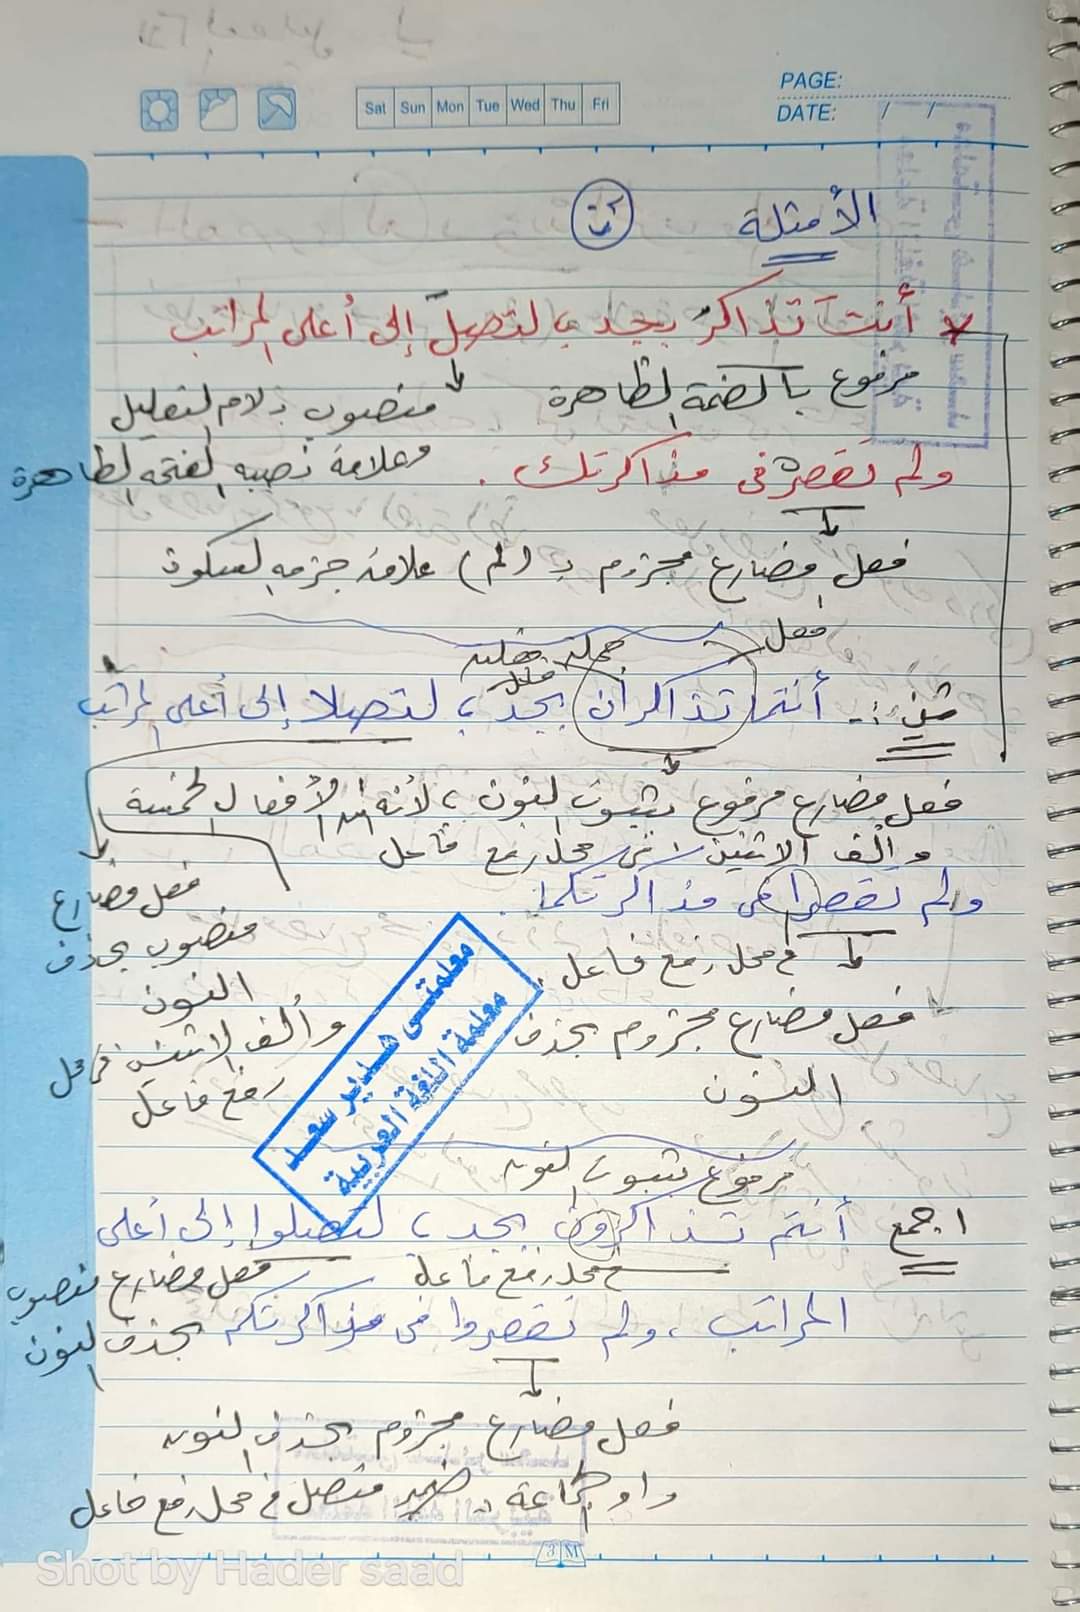 PAGE:
DATE: / /
Sat Sun Mon Tue Wed Thu Fri
الأمثلة
أنتَ تذاكرُ بجد، لتصلَ إلى أعلى المراتب
مرفوع بالضمة الظاهرة
منصوب بلام التعليل
وعلامة نصبه الفتحة الظاهرة
ولم تقصرْ في مذاكرتك.
فعل مضارع مجزوم بـ (لم) علامة جزمه السكون
فعل
جملة فعلية
فاعل
ثنِّ :- أنتما تذاكران بجد، لتصلا إلى أعلى المراتب
فعل مضارع مرفوع بثبوت النون، لأنه من الأفعال الخمسة
وألف الاثنين في محل رفع فاعل
فعل مضارع
منصوب بحذف
النون
وألف الاثنين في محل
رفع فاعل
ولم تقصرا في مذاكرتكما.
في محل رفع فاعل.
فعل مضارع مجزوم بحذف
النون
معلمتى هدير سعد
معلمة اللغة العربية
مرفوع بثبوت النون
اجمع أنتم تذاكرون بجد، لتصلوا إلى أعلى
في محل رفع فاعل
فعل مضارع منصوب
بحذف النون
المراتب، ولم تقصروا في مذاكرتكم
فعل مضارع مجزوم بحذف النون
واو الجماعة ضمير متصل في محل رفع فاعل
3M
Shot by Hader saad